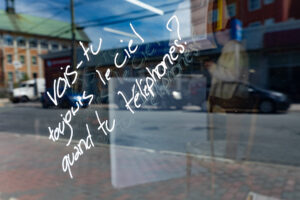 vois-tu
toujours le ciel
quand tu téléphones?